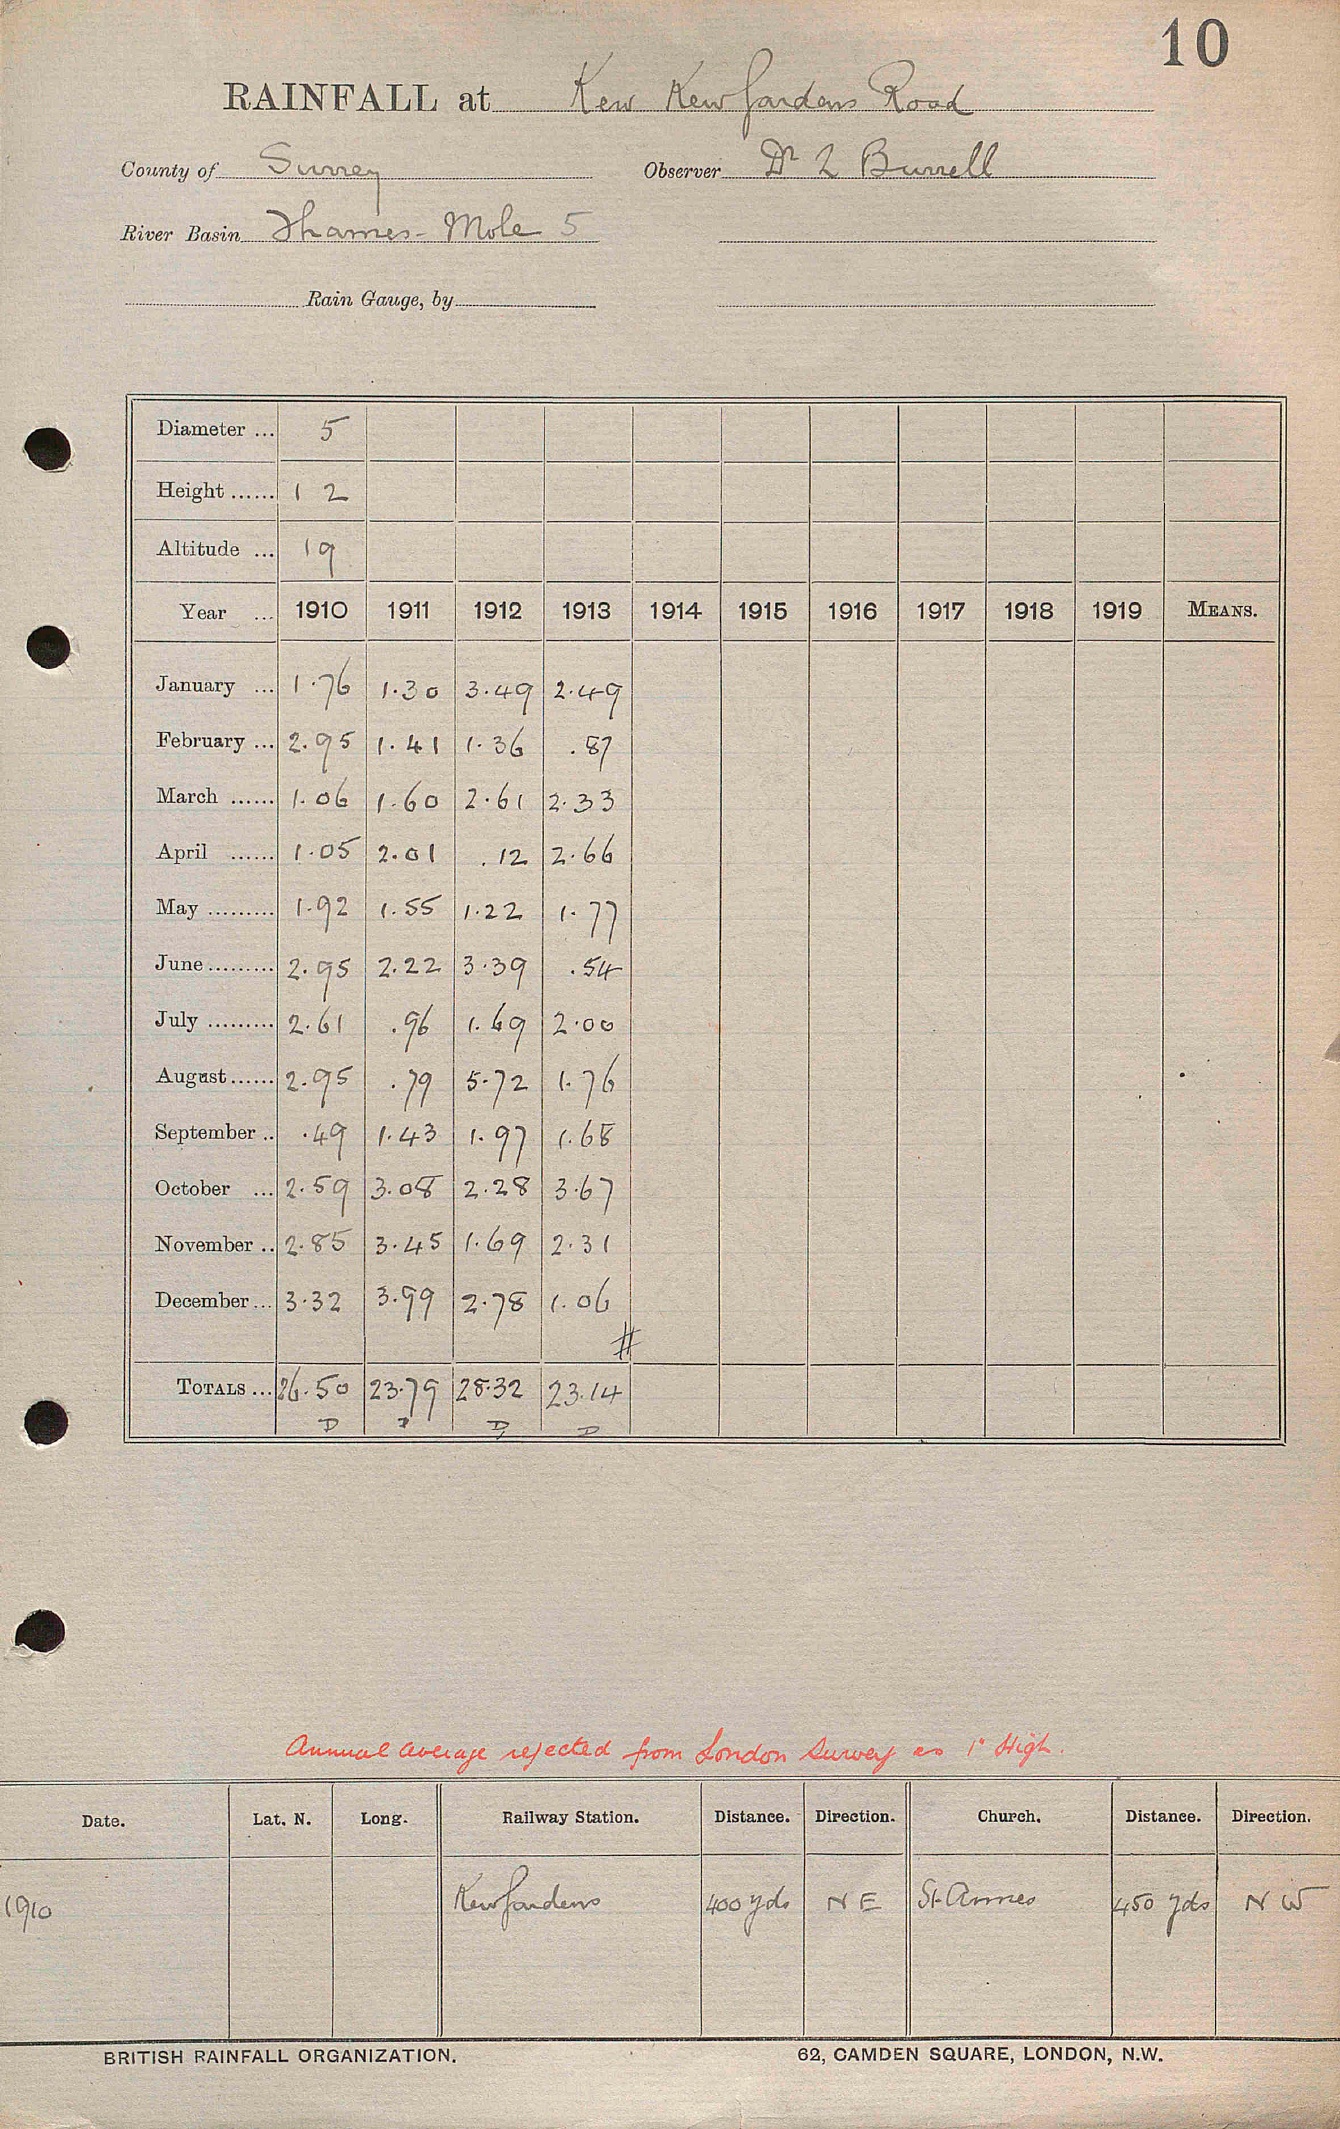 10
RAINFALL at Kew Kew Gardens Road
County of Surrey Observer Dr L Burrell
River Basin Thames - Mole 5
Rain Gauge, by
Diameter ... 5
Height ...... 1 2
Altitude ... 19
Year ... 1910 1911 1912 1913 1914 1915 1916 1917 1918 1919 MEANS.
January ... 1.76 1.30 3.49 2.49
February ... 2.95 1.41 1.36 .87
March ...... 1.06 1.60 2.61 2.33
April ...... 1.05 2.01 .12 2.66
May ......... 1.92 1.55 1.22 1.77
June ......... 2.95 2.22 3.39 .54
July ......... 2.61 .96 1.69 2.00
August ...... 2.95 .79 5.72 1.76
September .. .49 1.43 1.97 1.68
October ... 2.59 3.08 2.28 3.67
November .. 2.85 3.45 1.69 2.31
December ... 3.32 3.99 2.78 1.06
#
TOTALS ... 26.50 23.79 28.32 23.14
D D D D
Annual average rejected from London Survey as 1" High.
Date. Lat. N. Long. Railway Station. Distance. Direction. Church. Distance. Direction.
1910 Kew Gardens 400 yds N E St. Annes 450 yds N W
BRITISH RAINFALL ORGANIZATION. 62, CAMDEN SQUARE, LONDON, N.W.